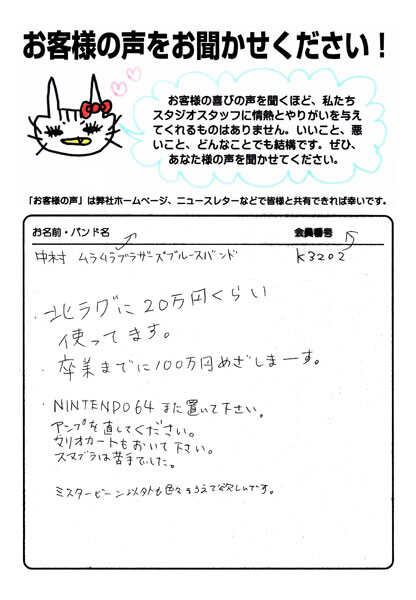 お客様の声をお聞かせください！
お客様の喜びの声を聞くほど、私たち
スタジオスタッフに情熱とやりがいを与え
てくれるものはありません。いいこと、悪
いこと、どんなことでも結構です。ぜひ、
あなた様の声を聞かせてください。
「お客様の声」は弊社ホームページ、ニュースレターなどで皆様と共有できれば幸いです。
お名前・バンド名 会員番号
中村 ムラムラブラザーズブルースバンド K3202
・北ラグに20万円くらい
使ってます。
・卒業までに100万円めざしまーす。
・NINTENDO64また置いて下さい。
アンプを直してください。
マリオカートもおいて下さい。
スマブラは苦手でした。
ミスタービーン以外も色々そろえて欲しいです。